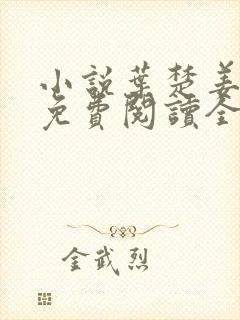 小説葉楚姜
免費閱讀全
金武烈